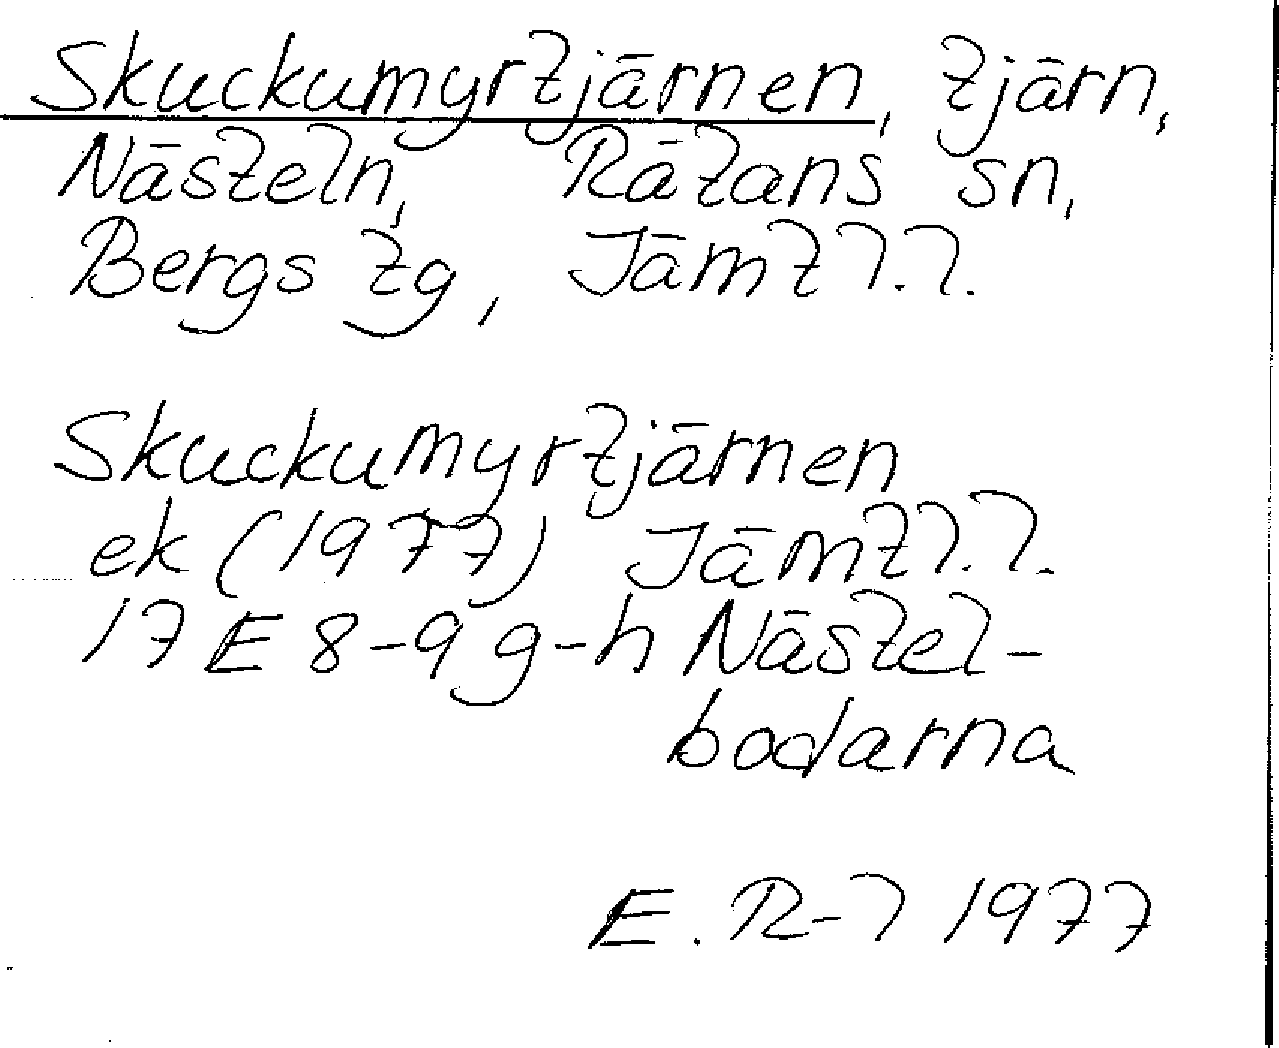 Skuckumyrtjärnen, tjärn,
Nästeln, Rätans sn,
Bergs tg, Jämtl.l.
Skuckumyrtjärnen
ek (1977) Jämtl.l.
17E 8-9 g-h Nästel-
bodarna
E. R-l 1977